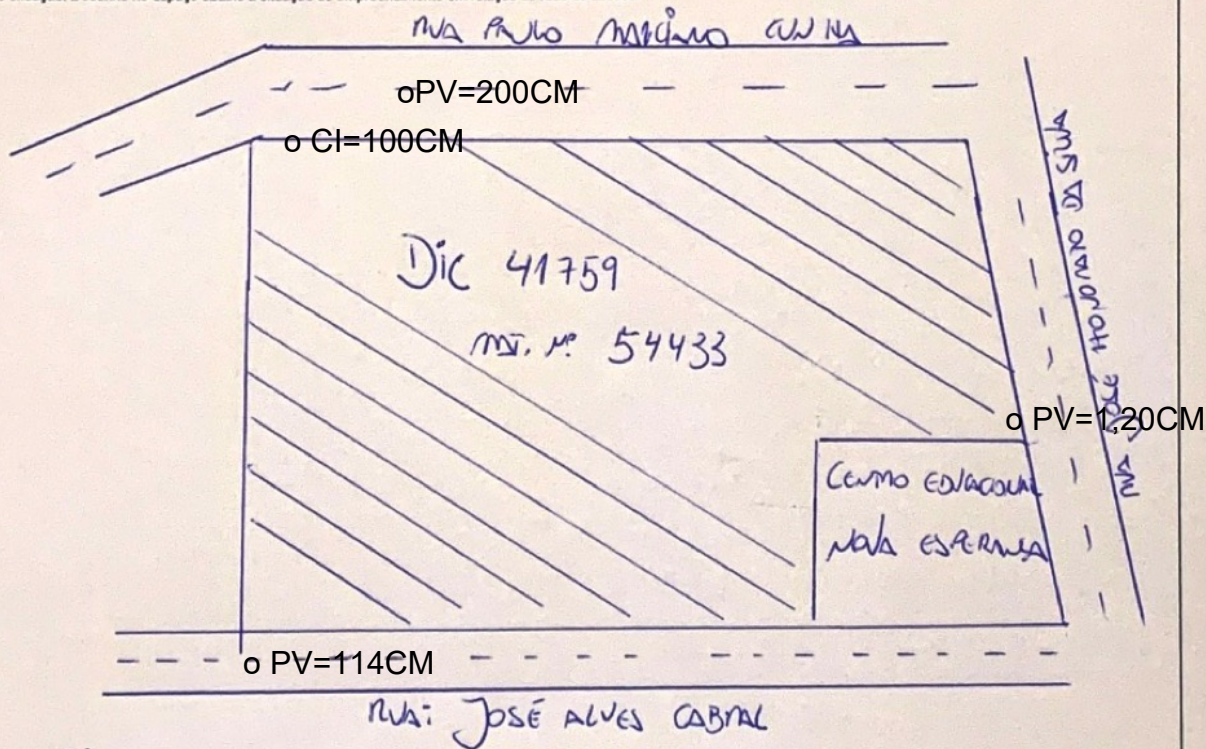 RUA PAULO MARCIANO CUNHA
oPV=200CM
o CI=100CM
DIC 41759
MT. Nº 54433
RUA JOSÉ HONORATO DA SILVA
o PV=1,20CM
CENTRO EDUCACIONAL
NOVA ESPERANSA
o PV=114CM
RUA: JOSÉ ALVES CABRAL